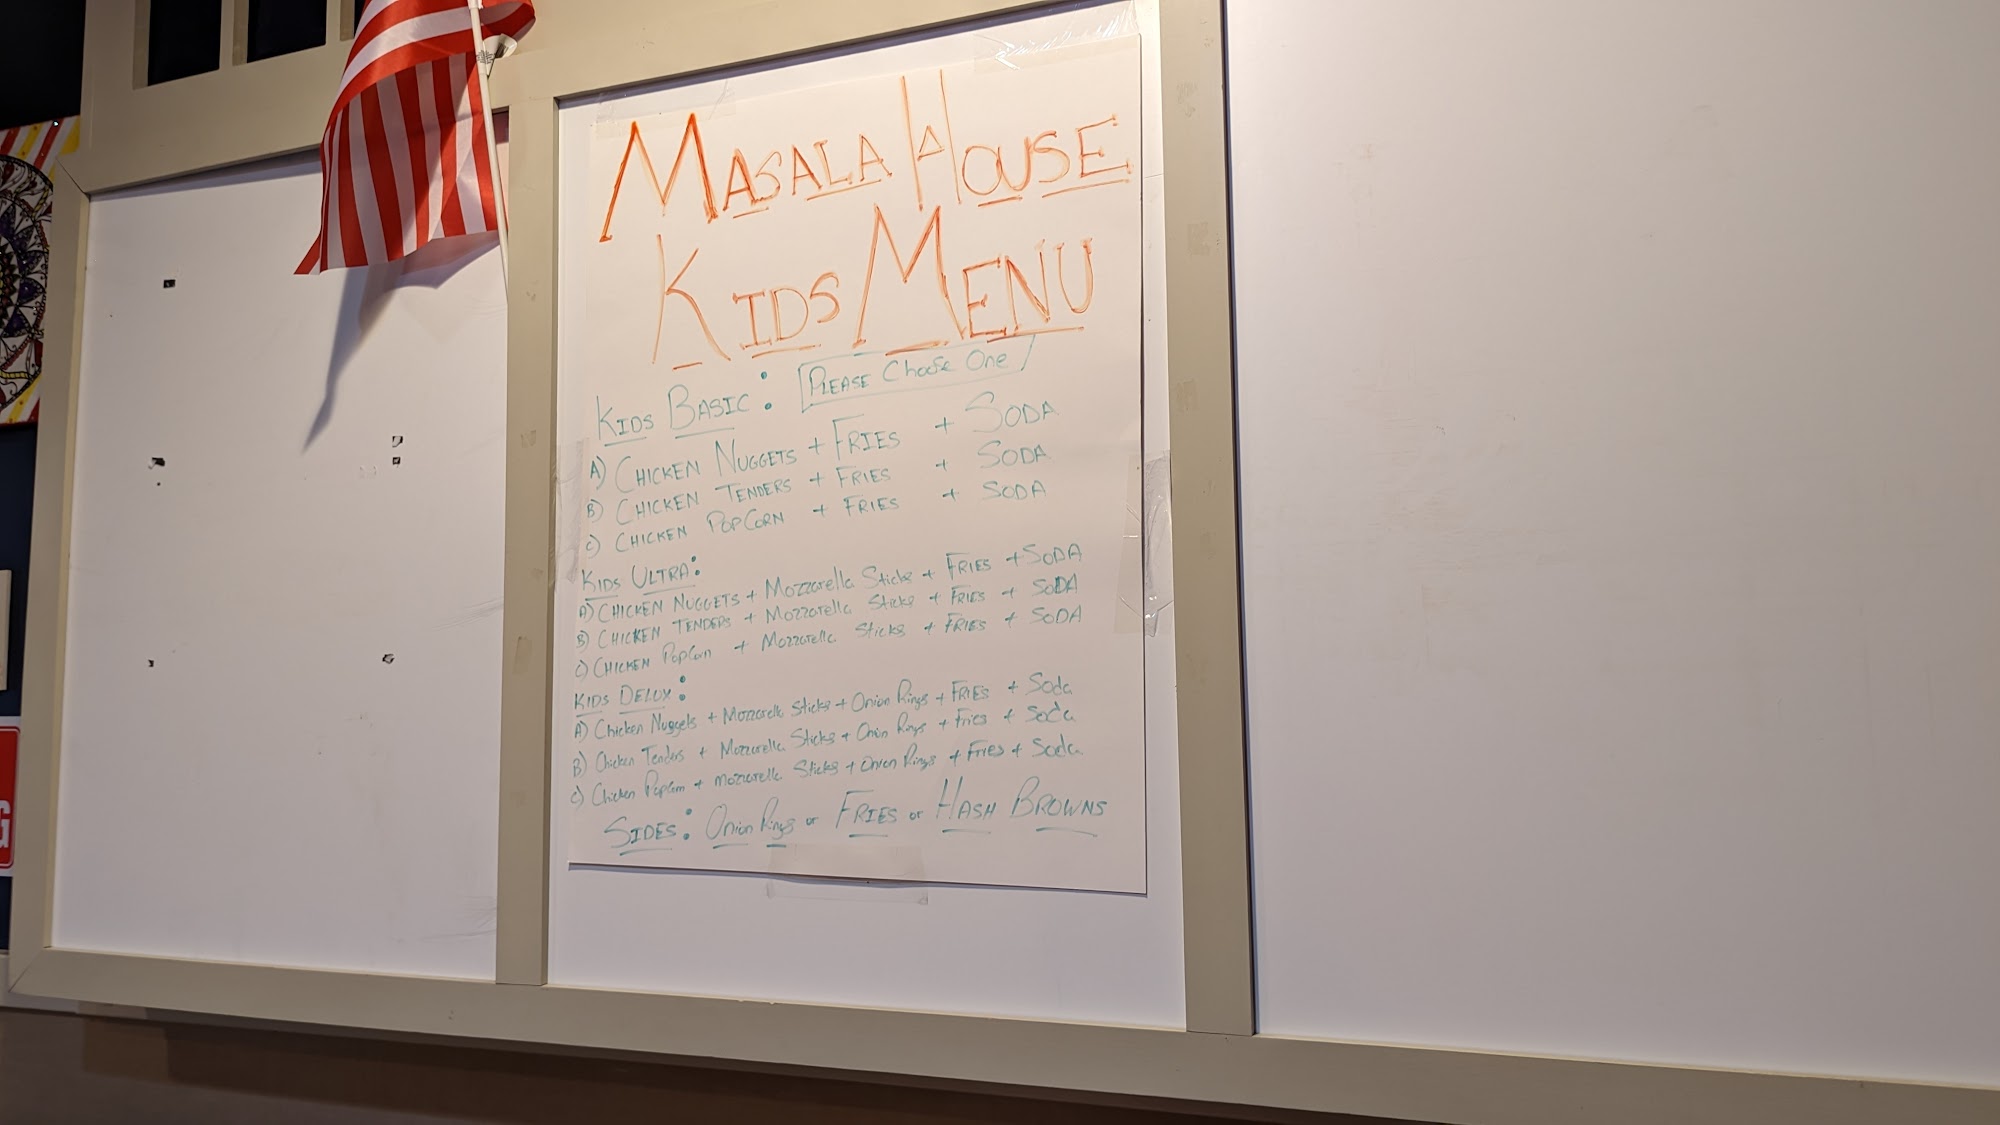 MASALA HOUSE
KIDS MENU
KIDS BASIC: PLEASE Choose One
A) CHICKEN NUGGETS + FRIES + SODA
B) CHICKEN TENDERS + FRIES + SODA
C) CHICKEN POPCORN + FRIES + SODA
KIDS ULTRA:
A) CHICKEN NUGGETS + Mozzarella Sticks + FRIES + SODA
B) CHICKEN TENDERS + Mozzarella Sticks + FRIES + SODA
C) CHICKEN PopCorn + Mozzarella Sticks + FRIES + SODA
KIDS DELUX:
A) Chicken Nuggets + Mozzarella Sticks + Onion Rings + FRIES + Soda
B) Chicken Tenders + Mozzarella Sticks + Onion Rings + Fries + Soda
C) Chicken PopCorn + mozzarella Sticks + Onion Rings + Fries + Soda
SIDES: Onion Rings or FRIES or HASH BROWNS
G